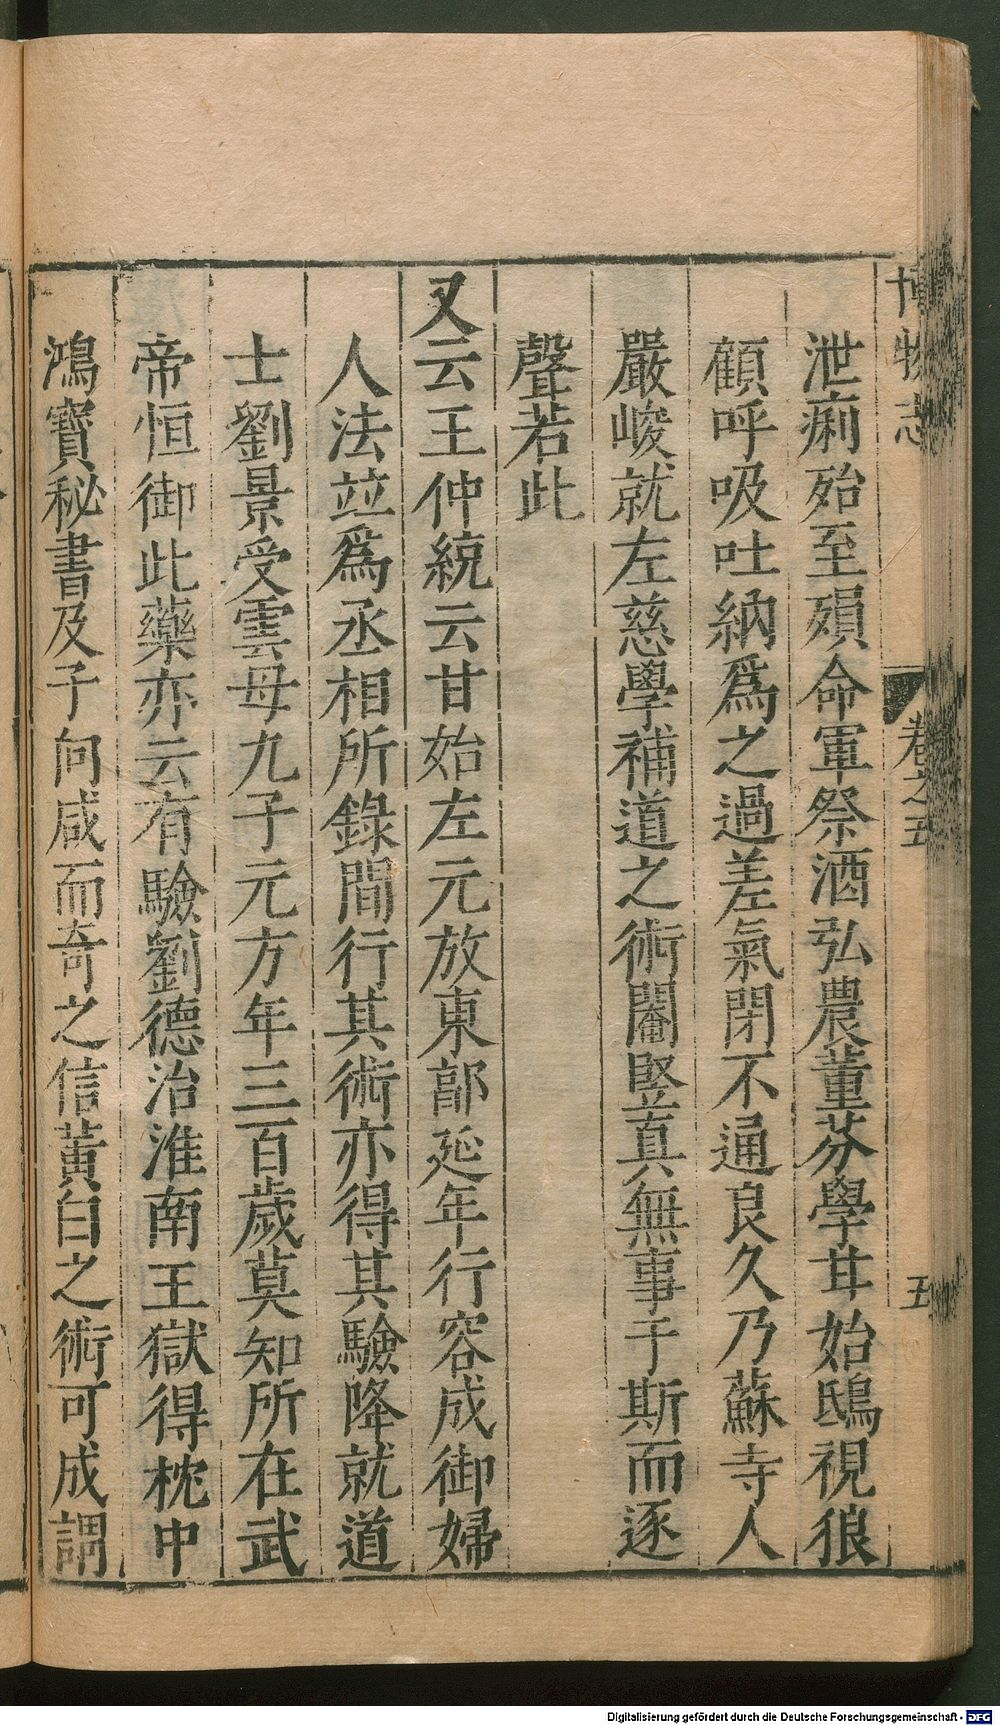 博物志 卷之五 五
泄痢殆至殞命軍祭酒弘農董芬學甘始鴟視狼
顧呼吸吐納爲之過差氣閉不通良久乃蘇寺人
嚴峻就左慈學補道之術閹竪真無事于斯而逐
聲若此
又云王仲統云甘始左元放東郭延年行容成御婦
人法並爲丞相所錄間行其術亦得其驗降就道
士劉景受雲母九子元方年三百歲莫知所在武
帝恒御此藥亦云有驗劉德治淮南王獄得枕中
鴻寶秘書及子向咸而奇之信黃白之術可成謂
Digitalisierung gefördert durch die Deutsche Forschungsgemeinschaft - DFG